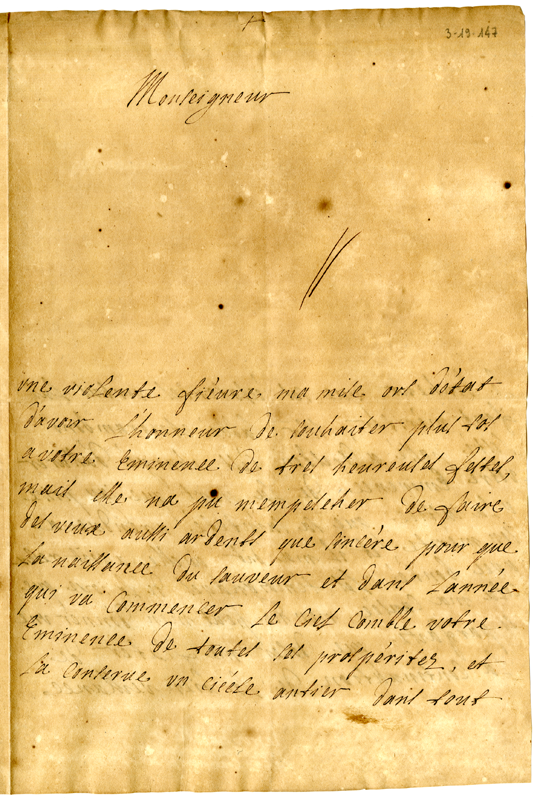 3-19-147
Monseigneur
une violente fiévre ma mise ors détat
davoir l'honneur de souhaiter plus tos
a votre Eminence de tres heureuses festes,
mais elle na pu mempescher de faire
des veux aussi ardents que sincére pour que
La naissance du sauveur et dans L'année
qui va commencer le ciel comble votre
Eminence de toutes ses prospéritez, et
La conserve un ciécle antier dans tout